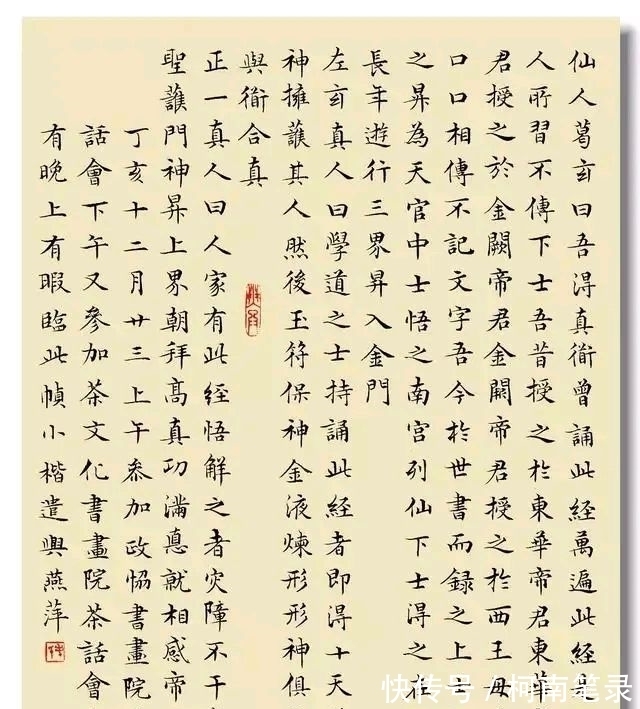 仙人葛玄曰吾淂真衜曾誦此經萬遍此經
人所習不傳下士吾昔授之於東華帝君東華
君授之於金闕帝君金闕帝君授之於西王母
口口相傳不記文字吾今於世書而録之上
之昇為天官中士悟之南宮列仙下士淂之在
長年遊行三界昇入金門
左玄真人曰學道之士持誦此經者即淂十天
神擁護其人然後玉符保神金液煉形形神俱
與衜合真
正一真人曰人家有此經悟解之者灾障不干
聖護門神昇上界朝拜髙真功滿悳就相感帝
丁亥十二月廿三上午參加政協書畫院
話會下午又參加茶文化書畫院茶話會
有晚上有暇臨此幀小楷遣興燕萍
快传号 / 柯南笔录